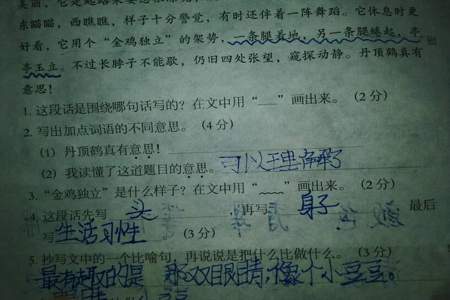 东瞄瞄，西瞧瞧，样子十分警觉，有时还伴着一阵舞蹈。它休息时更
好看，它用个“金鸡独立”的架势，一条腿直地，另一条腿蜷起，亭
亭玉立。不过长脖子不能歌，仍旧四处张望，窥探动静。丹顶鹤真有
意思！
1. 这段话是围绕哪句话写的？在文中用“___”画出来。（2 分）
2. 写出加点词语的不同意思。（4 分）
（1）丹顶鹤真有意思！
（2）我读懂了这道题目的意思。可以理解了
3. “金鸡独立”是什么样子？在文中用“﹏﹏”画出来。（2 分）
4. 这段话先写 头 再写 身子 最后
写 生活习性 （3 分）
5. 抄写文中的一个比喻句，再说说是把什么比做什么。（3 分）
最有趣的是 那双眼睛，像个小豆豆。